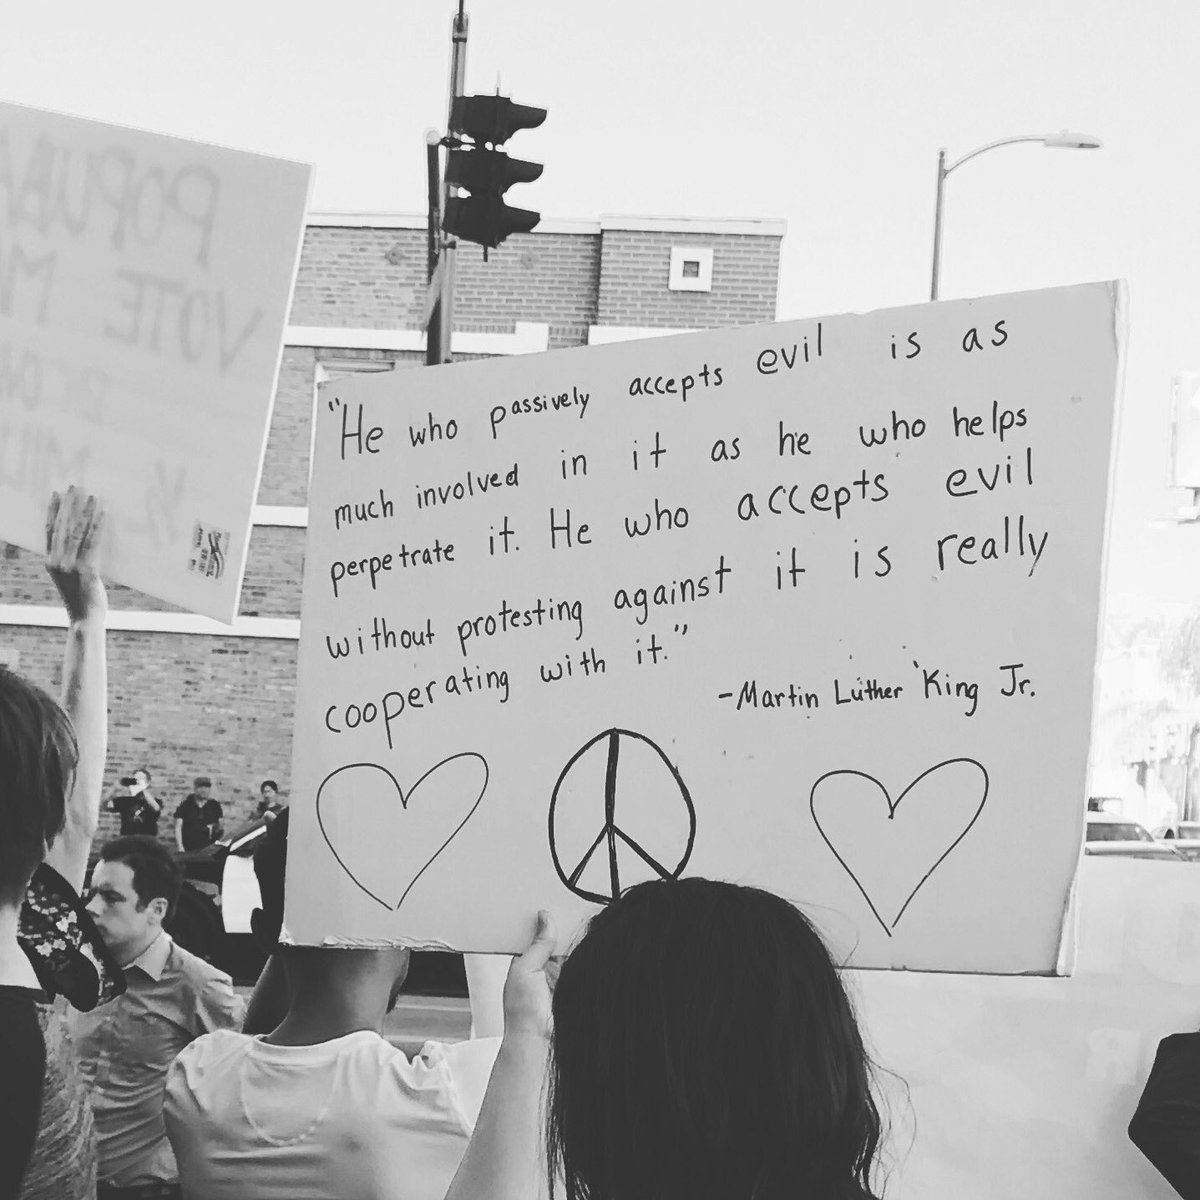 "He who passively accepts evil is as
much involved in it as he who helps
perpetrate it. He who accepts evil
without protesting against it is really
cooperating with it."
-Martin Luther King Jr.
POPULA
VOTE